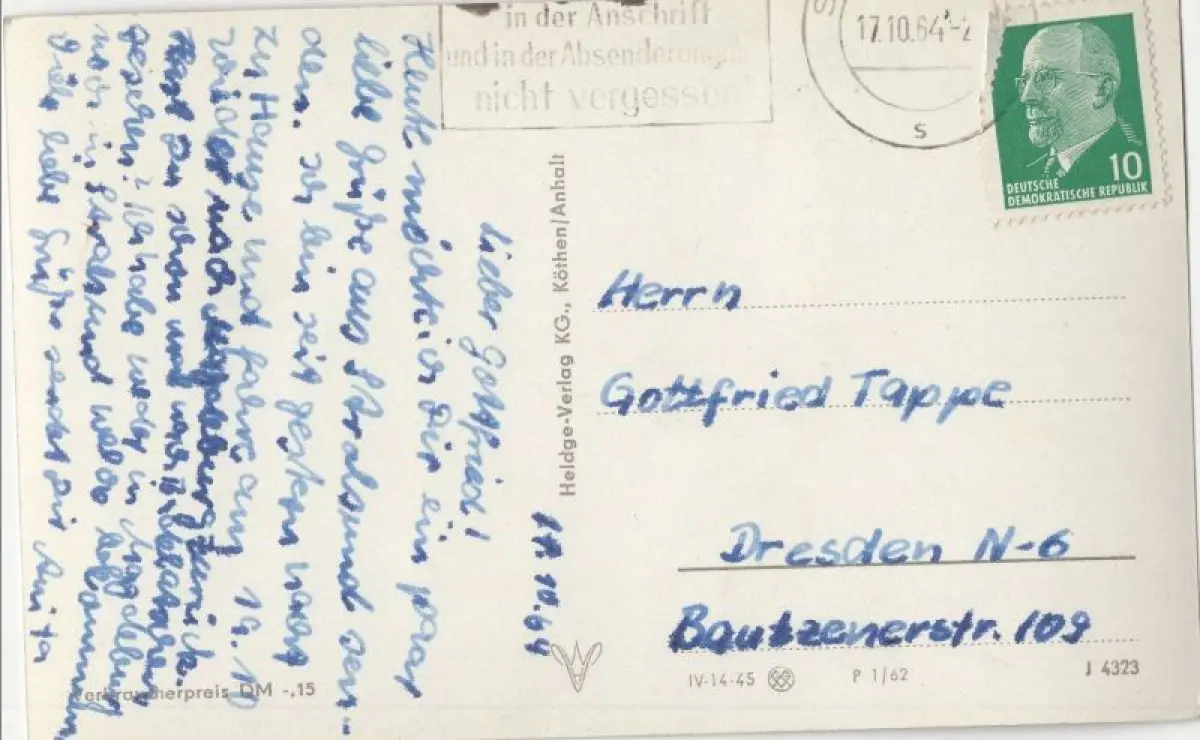 in der Anschrift
und in der Absenderangabe
nicht vergessen
17.10.64-2
S
s
DEUTSCHE
DEMOKRATISCHE REPUBLIK
10
10.64
Lieber Gottfried!
Heute möchte ich Dir ein paar
liebe Grüße aus Stralsund sen-
den. Ich bin seit gestern nach
zu Hause und fahre am 19.10
wieder nach Magdeburg zurück.
Hast Du schon
gesehen? Ich habe weder in Magdeburg
noch in Stralsund welche bekommen
Viele liebe Grüße sendet Dir Anita
Heldge-Verlag KG., Köthen/Anhalt
Herrn
Gottfried Tappe
Dresden N-6
Bautzenerstr. 109
Verbraucherpreis DM -,15
IV-14-45
P 1/62
J 4323